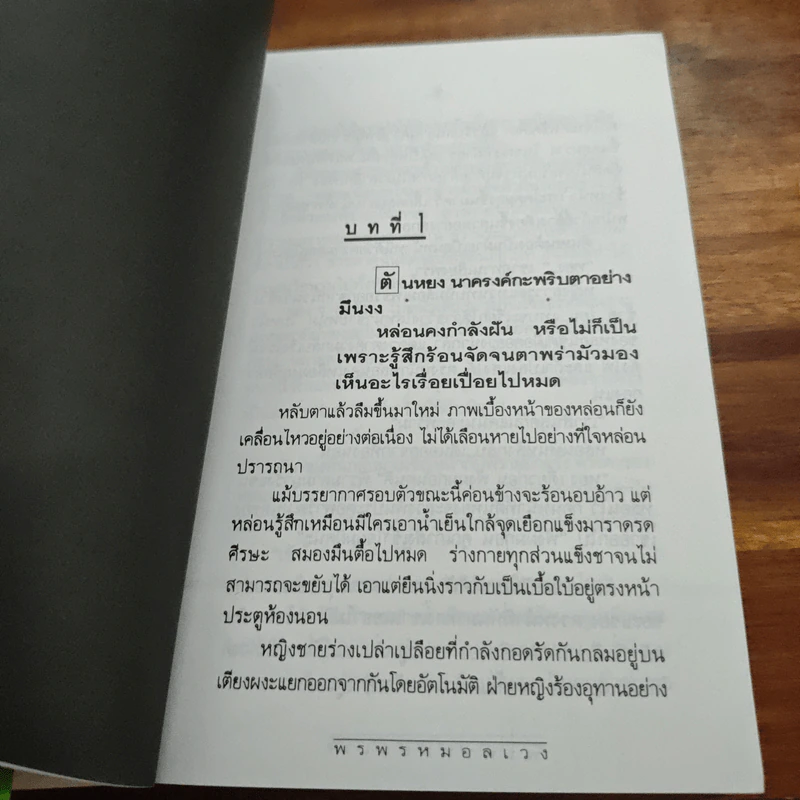 บทที่ 1
ตันหยง นาครงค์กะพริบตาอย่าง
มึนงง
หล่อนคงกำลังฝัน หรือไม่ก็เป็น
เพราะรู้สึกร้อนจัดจนตาพร่ามัวมอง
เห็นอะไรเรื่อยเปื่อยไปหมด
หลับตาแล้วลืมขึ้นมาใหม่ ภาพเบื้องหน้าของหล่อนก็ยัง
เคลื่อนไหวอยู่อย่างต่อเนื่อง ไม่ได้เลือนหายไปอย่างที่ใจหล่อน
ปรารถนา
แม้บรรยากาศรอบตัวขณะนี้ค่อนข้างจะร้อนอบอ้าว แต่
หล่อนรู้สึกเหมือนมีใครเอาน้ำเย็นใกล้จุดเยือกแข็งมาราดรด
ศีรษะ สมองมึนตื้อไปหมด ร่างกายทุกส่วนแข็งชาจนไม่
สามารถจะขยับได้ เอาแต่ยืนนิ่งราวกับเป็นเบื้อใบ้อยู่ตรงหน้า
ประตูห้องนอน
หญิงชายร่างเปล่าเปลือยที่กำลังกอดรัดกันกลมอยู่บน
เตียงผงะแยกออกจากกันโดยอัตโนมัติ ฝ่ายหญิงร้องอุทานอย่าง
พรพรหมอลเวง